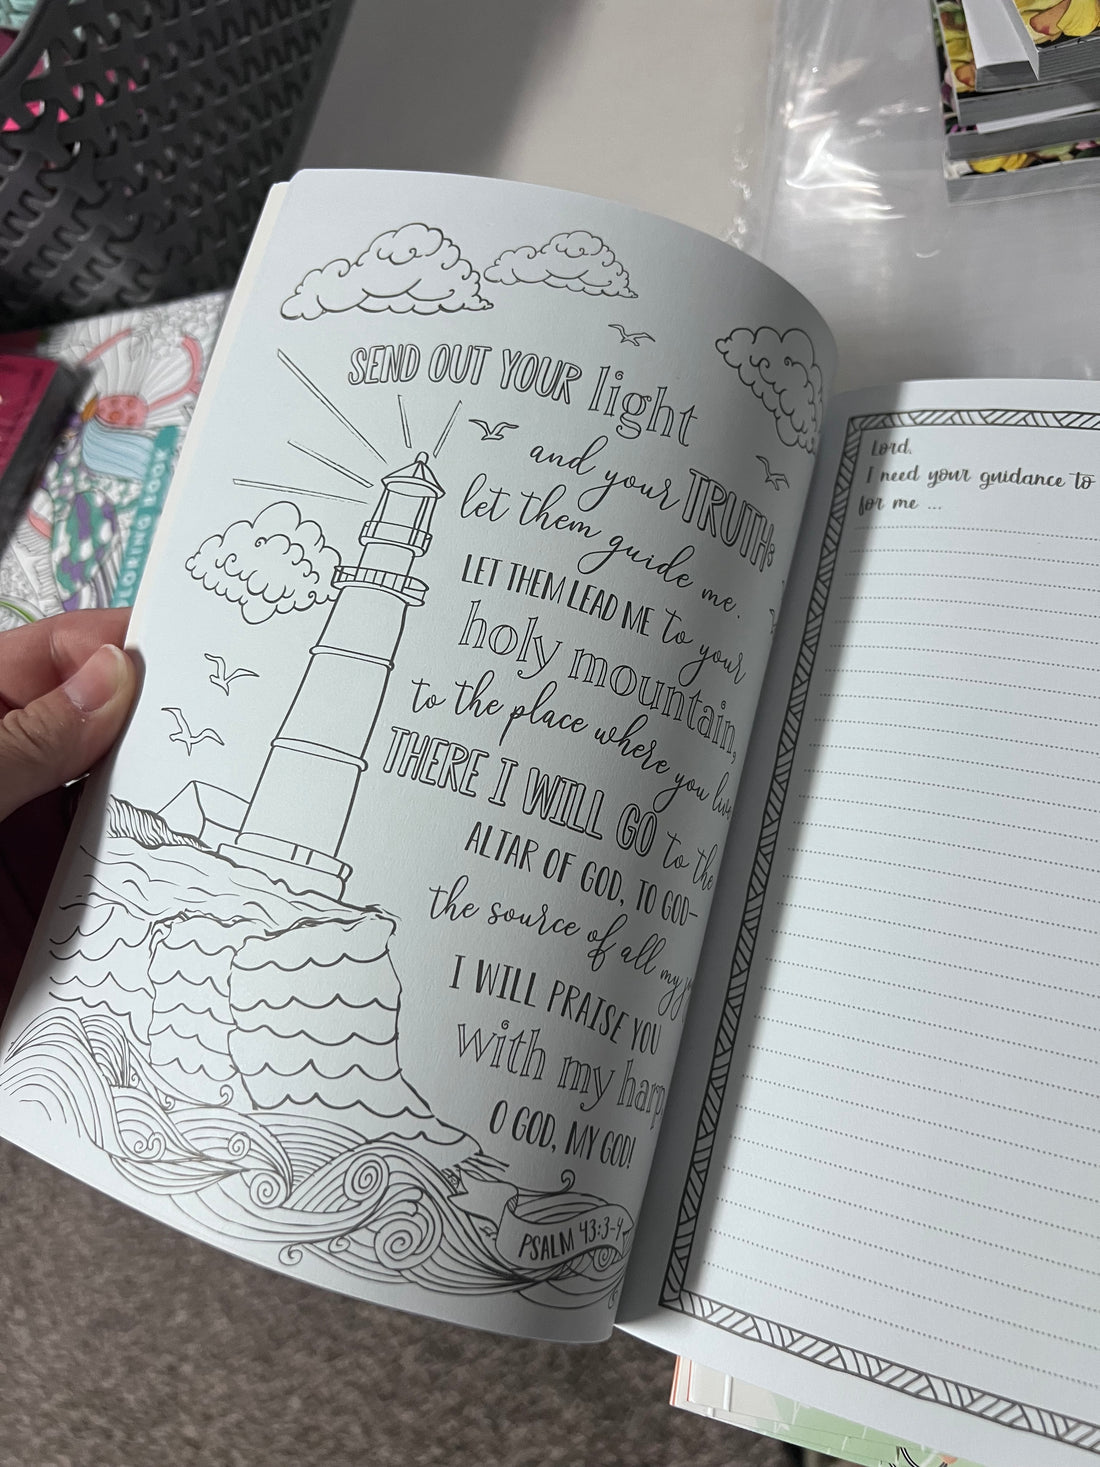 SEND OUT YOUR light
and your TRUTH;
let them guide me.
LET THEM LEAD ME to your
holy mountain,
to the place where you
THERE I WILL GO to the
ALTAR OF GOD, TO GOD—
the source of all my
I WILL PRAISE YOU
with my harp
O GOD, MY GOD!
PSALM 43:3-4
Lord,
I need your guidance to
for me ...
COLORING BOOK